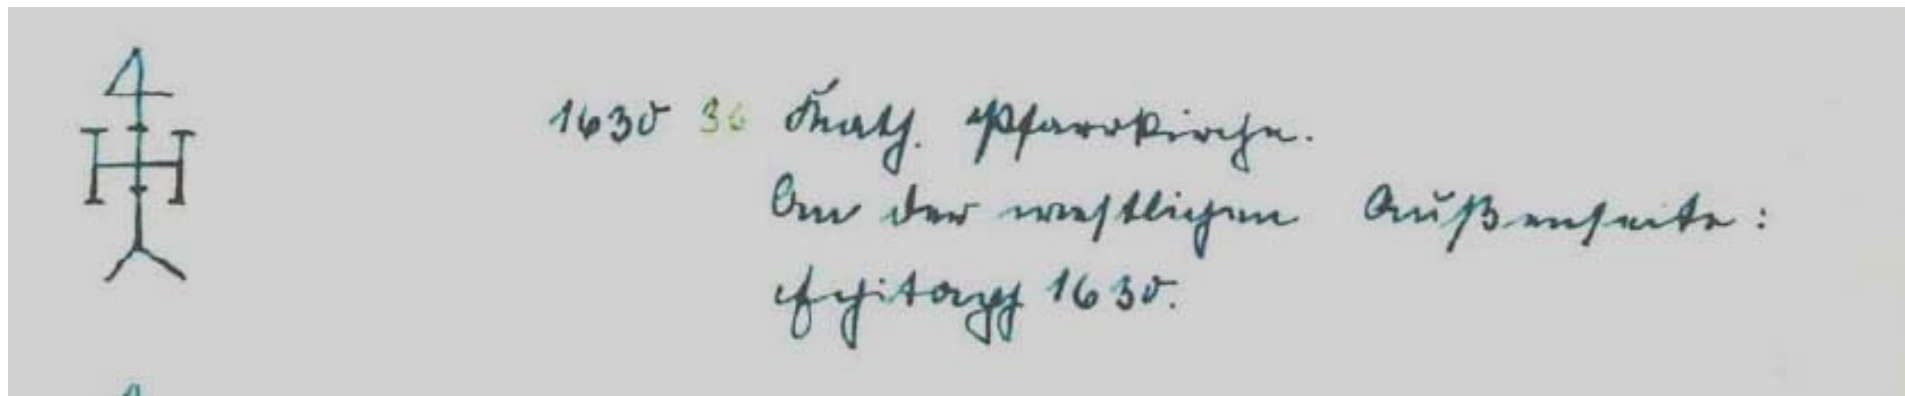 1630 36 Kath. Pfarrkirche.
An der westlichen Außenseite:
Epitaph 1630.